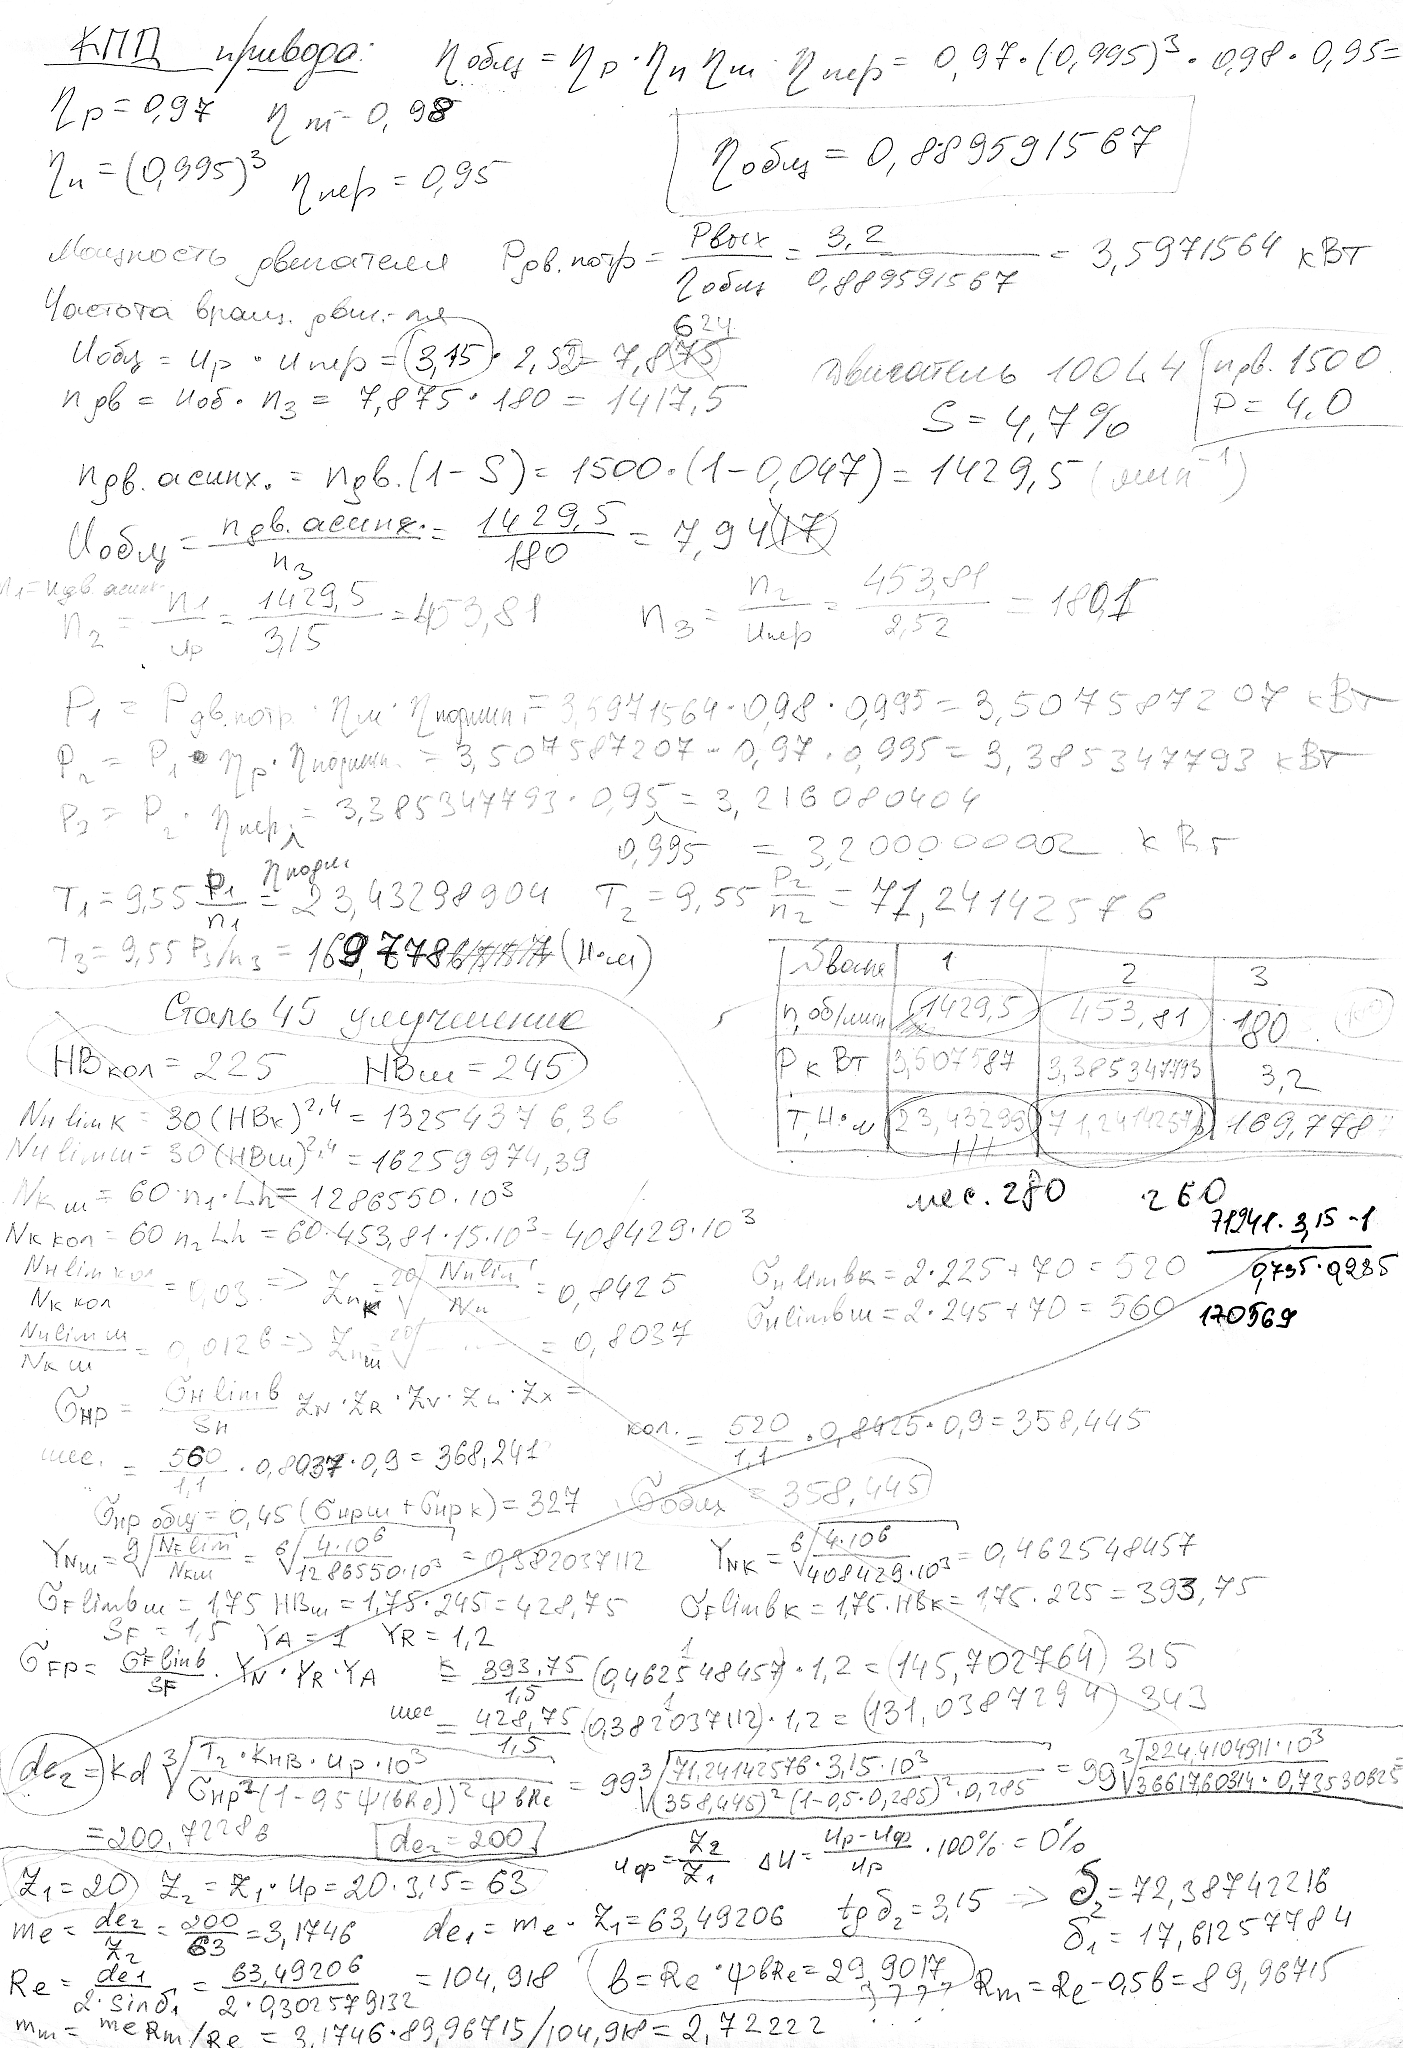 КПД привода: ηобщ = ηр · ηп ηм · ηпер = 0,97·(0,995)³ · 0,98 · 0,95=
ηр = 0,97 ηм = 0,98
ηп = (0,995)³ ηпер = 0,95
ηобщ = 0,889591567
Мощность двигателя Рдв.потр = Рвых/ηобщ = 3,2/0,889591567 = 3,5971564 кВт
Частота вращ. двиг-ля
Uобщ = uр · uпер = 3,15 · 2,52 = 7,875 624
nдв = uоб · n3 = 7,875 · 180 = 1417,5
Двигатель 100L4 nдв. 1500
S = 4,7% P = 4,0
nдв. асинх. = nдв.(1 – S) = 1500·(1–0,047) = 1429,5 (мин⁻¹)
Uобщ = nдв.асинх./n3 = 1429,5/180 = 7,9417
n1 = nдв.асинх
n2 = n1/uр = 1429,5/3,15 = 453,81 n3 = n2/uпер = 453,81/2,52 = 180,1
P1 = Pдв.потр · ηм · ηподшип. = 3,5971564 · 0,98 · 0,995 = 3,507587207 кВт
P2 = P1 · ηр · ηподшип. = 3,507587207 · 0,97 · 0,995 = 3,385347793 кВт
P3 = P2 · ηпер = 3,385347793 · 0,95 = 3,216080404
ηподш 0,995 = 3,200000002 кВт
T1 = 9,55 P1/n1 = 23,43298904 T2 = 9,55 P2/n2 = 71,24142576
T3 = 9,55 P3/n3 = 169,778 (Н·м)
Звание 1 2 3
n,об/мин 1429,5 453,81 180
P кВт 3,507587 3,385347793 3,2
T, Н·м 23,43299 71,2414257 169,7787
Сталь 45 улучшение
HBкол = 225 HBш = 245
NHlimк = 30(HBк)²,⁴ = 13254376,36
NHlimш = 30(HBш)²,⁴ = 16259974,39
Nкш = 60·n1·Lh = 1286550·10³
Nк кол = 60 n2 Lh = 60·453,81·15·10³ = 408429·10³
шес. 280 260
71241·3,15·1
0,735·0,285
170569
NHlim кол/Nк кол = 0,03 => Znк = ²⁰√NHlim/Nк = 0,8425 σHlimbк = 2·225+70 = 520
NHlim ш/Nк ш = 0,0126 => Znш = ²⁰√ = 0,8037 σHlimbш = 2·245+70 = 560
σHP = σHlimb/SH ZN·ZR·ZV·ZL·ZX =
кол. = 520/1,1 · 0,8425 · 0,9 = 358,445
шес. = 560/1,1 · 0,8037 · 0,9 = 368,241
σHP общ = 0,45(σHPш + σHPк) = 327 σобщ = 358,445
YNш = ⁹√NFlim/Nкш = ⁶√4·10⁶/1286550·10³ = 0,382037112 YNК = ⁶√4·10⁶/408429·10³ = 0,462548457
σFlimbш = 1,75 HBш = 1,75·245 = 428,75 σFlimbк = 1,75·HBк = 1,75·225 = 393,75
SF = 1,5 YA = 1 YR = 1,2
σFP = σFlimb/SF · YN · YR · YA к = 393,75/1,5 (0,462548457)·1,2 = (145,702764) 315
шес = 428,75/1,5 (0,382037112)·1,2 = (131,0387294) 343
de2 = Kd ³√T2·KHB·uр·10³/σHP²(1–0,5ψ(bRe))²ψbRe = 99 ³√71,24142576·3,15·10³/(358,445)²(1–0,5·0,285)²·0,285 = 99 ³√224,4104911·10³/36617,60314·0,73530625
= 200,72286 de2 = 200
Z1 = 20 Z2 = Z1·uр = 20·3,15 = 63 uф = Z2/Z1 Δu = uр–uф/uр · 100% = 0%
me = de2/Z2 = 200/63 = 3,1746 de1 = me · Z1 = 63,49206 tgδ2 = 3,15 => δ2 = 72,38742216
δ1 = 17,61257784
Re = de1/2·sinδ1 = 63,49206/2·0,302579132 = 104,918 b = Re·ψbRe = 29,9017 Rm = Re–0,5b = 89,96715
???
mm = me Rm/Re = 3,1746·89,96715/104,918 = 2,72222 ...